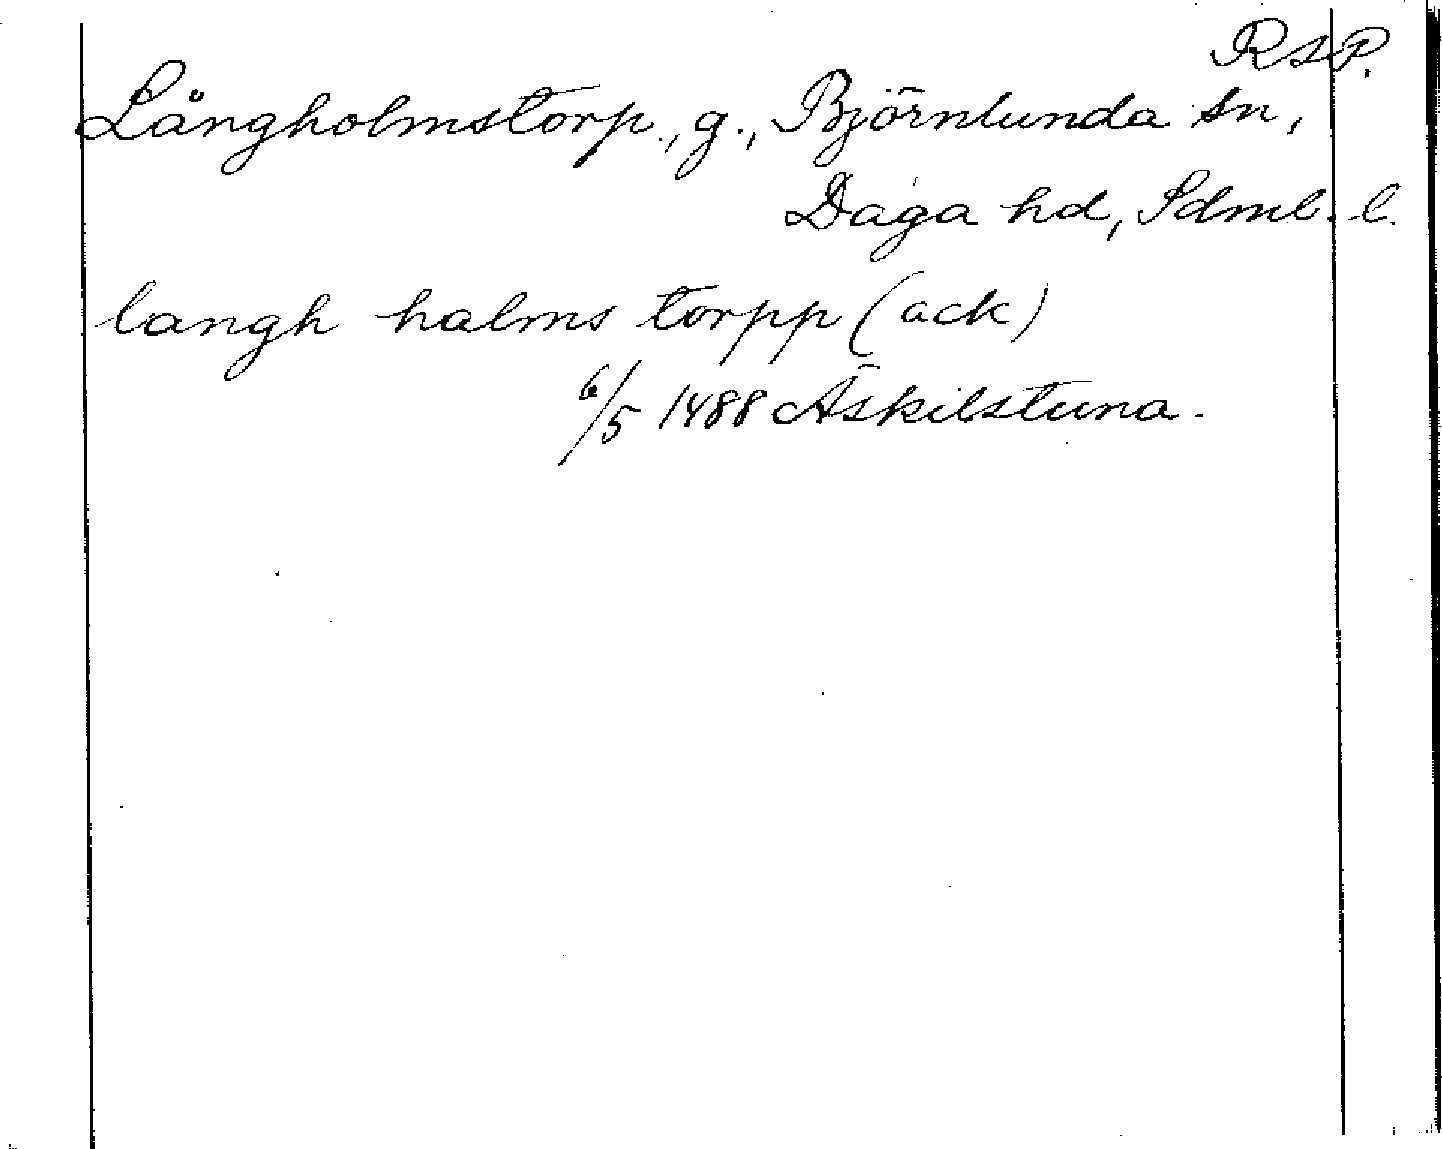 RAP.
Långholmstorp., g., Björnlunda sn,
Daga hd, Sdml. l.
langh halms torpp (ack)
6/5 1488 Äskilstuna.